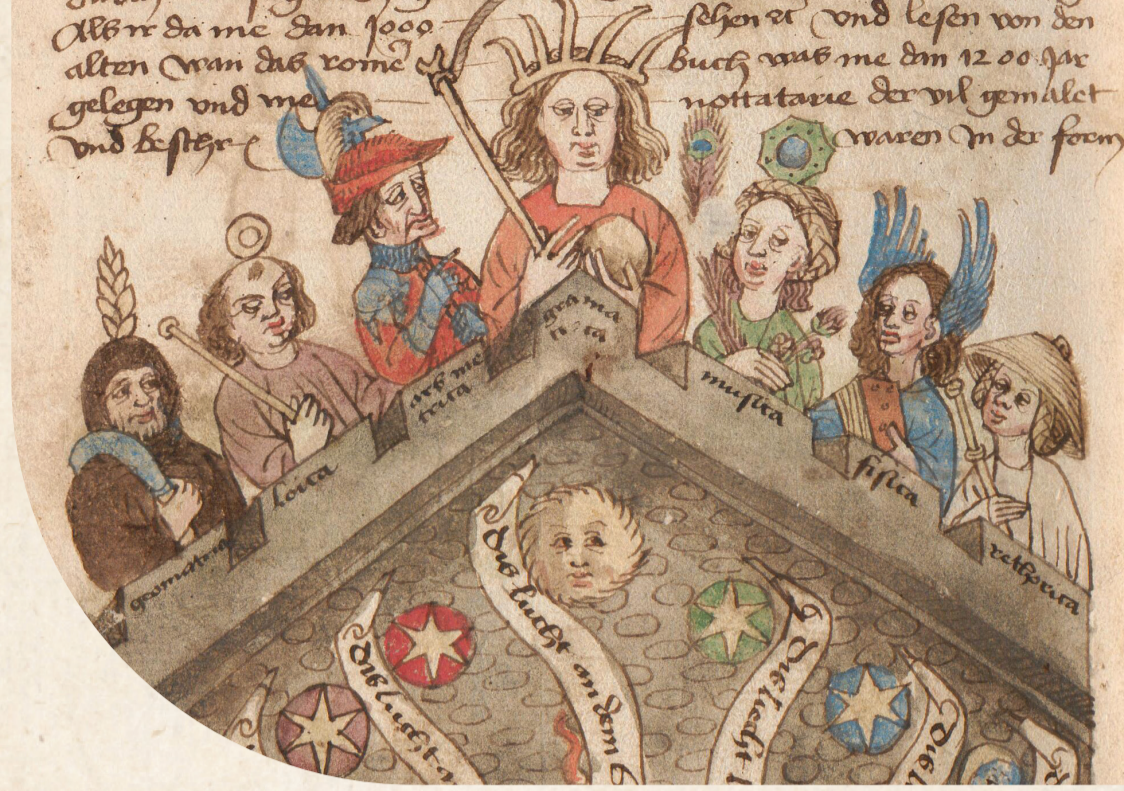 Als ir da me dan 1000
alten wan das rome
gelegen vnd me
vnd beschr
sehen vnd lesen von den
buch was me dan 1200 Jar
nottatarie der vil gemalet
waren In der form
grama
tica
ars me
trica
musica
loica
fisica
geometria
rethorica
Das lucht an dem
Das lught
Die lucht
Die